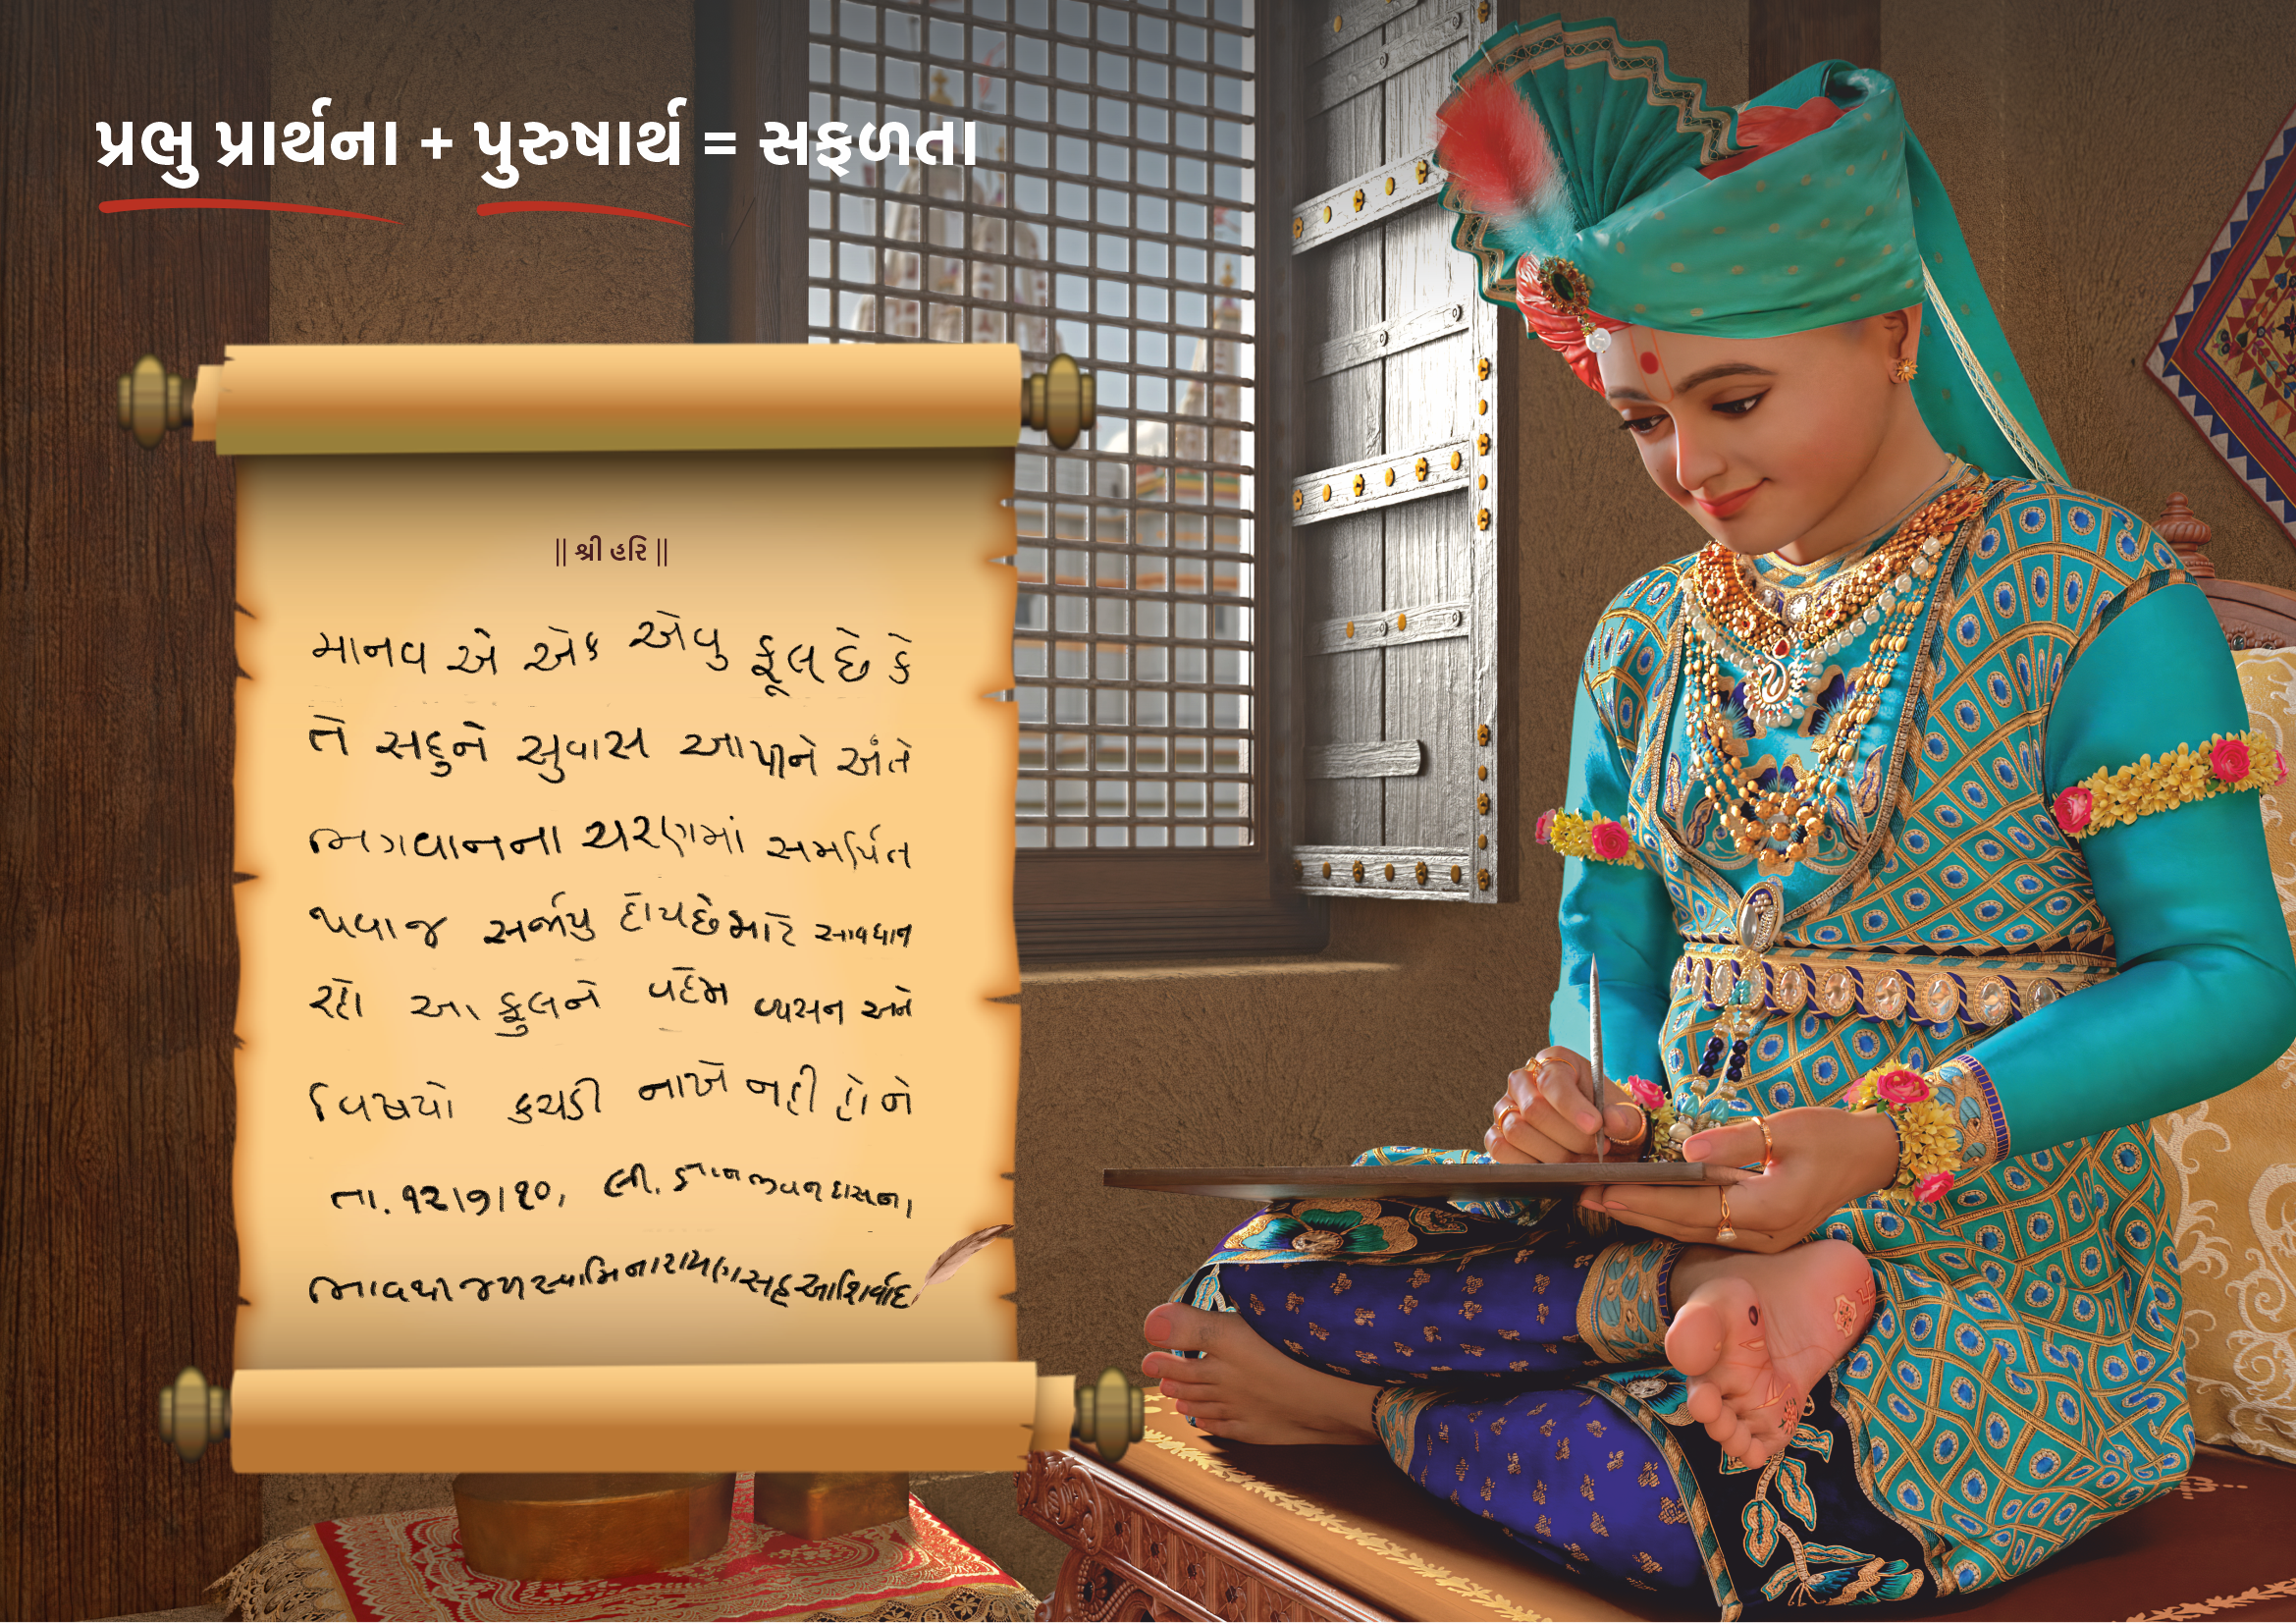 પ્રભુ પ્રાર્થના + પુરુષાર્થ = સફળતા
|| શ્રી હરિ ||
માનવ એ એક એવુ ફૂલ છે કે
તે સહુને સુવાસ આપીને અંતે
ભગવાનના ચરણમાં સમર્પિત
થવા જ સર્જાયુ હોય છે માટે સાવધાન
રહો આ ફુલને વહેમ વ્યસન અને
વિષયો કચડી નાખે નહી હોં ને
તા. ૧૨/૭/૧૦, લી. જ્ઞાનજીવનદાસના
ભાવથી જય સ્વામિનારાયણ સહ આશિર્વાદ